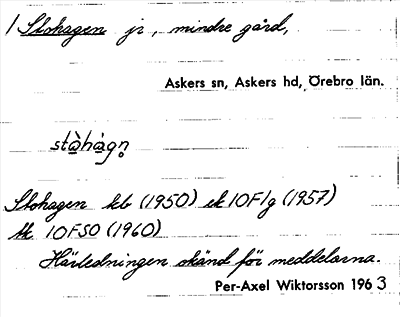 1 Slohagen jr, mindre gård,
Askers sn, Askers hd, Örebro län.
stò̱hàgn̥
Slohagen kb (1950) ek 10F1g (1957)
tk 10F SO (1960)
Härledningen okänd för meddelarna.
Per-Axel Wiktorsson 1963